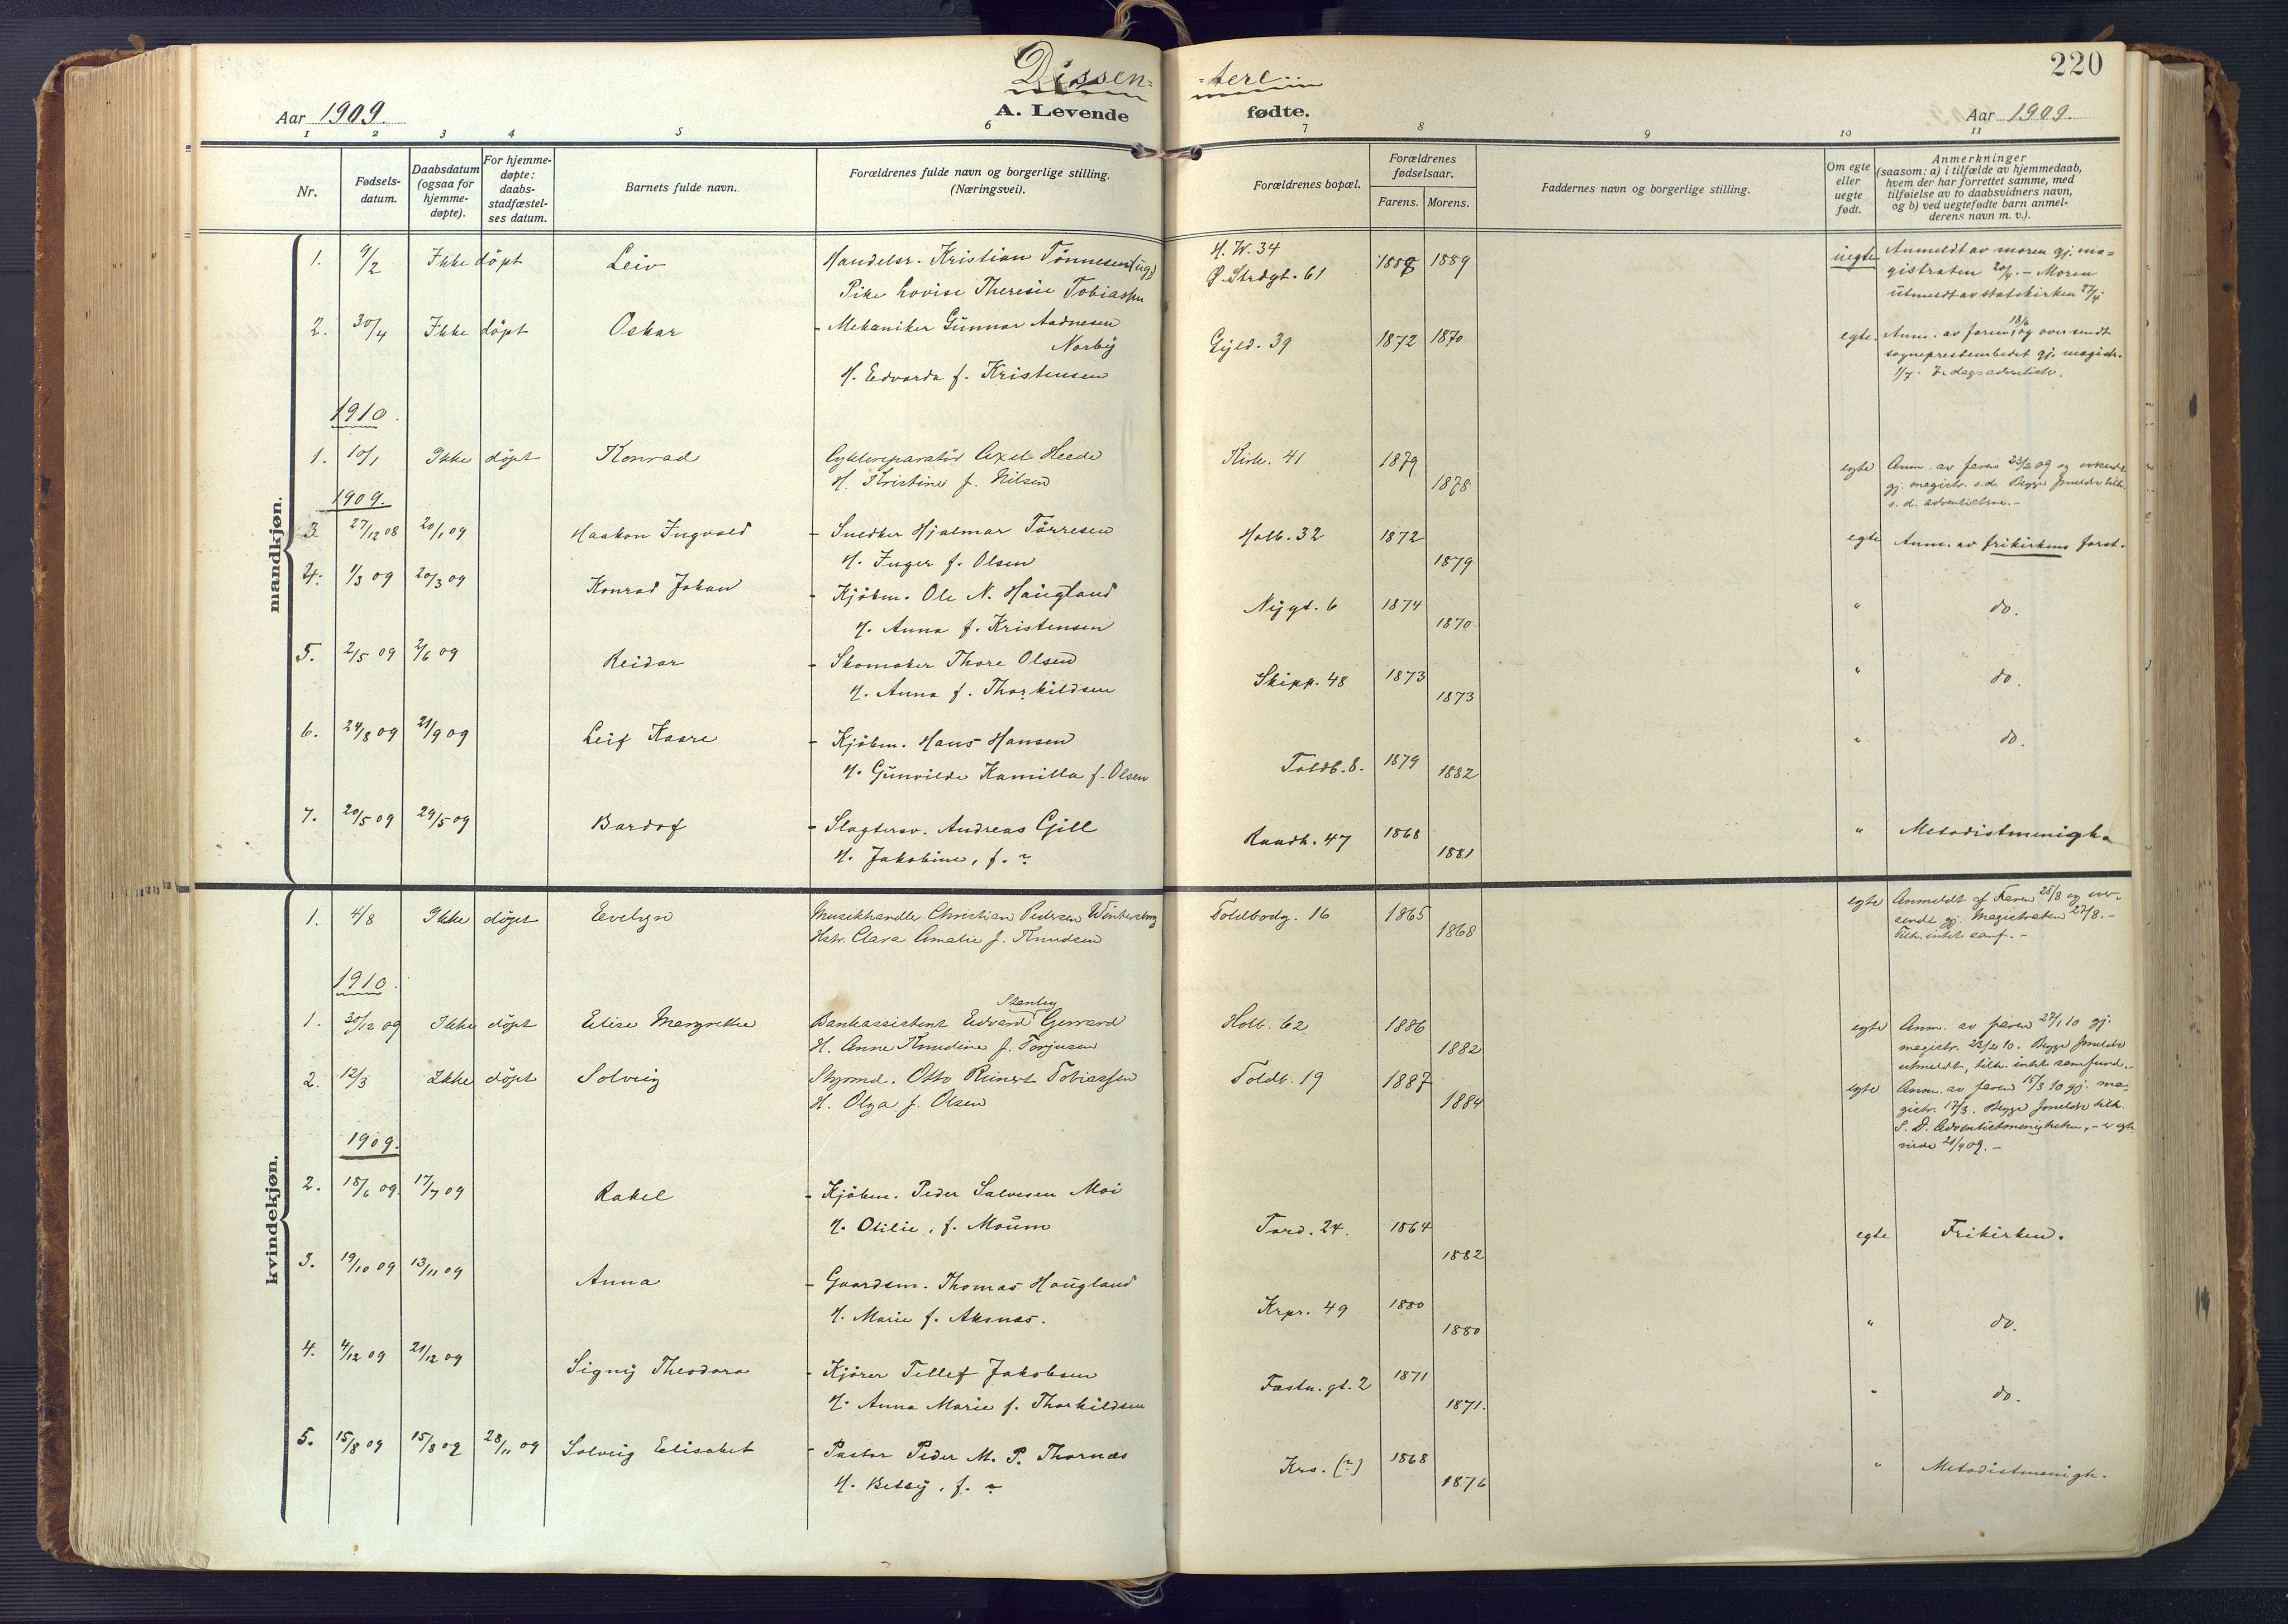 Dissen=
=tere
220
Aar 1909.
A. Levende
fødte.
Aar 1909.
1 2 3 4 5 6 7 8 9 10 11
Nr.
Fødsels-
datum.
Daabsdatum
(ogsaa for
hjemme-
døpte).
For hjemme-
døpte:
daabs-
stadfæstel-
ses datum.
Barnets fulde navn.
Forældrenes fulde navn og borgerlige stilling.
(Næringsvei).
Forældrenes bopæl.
Forældrenes
fødselsaar.
Farens. Morens.
Faddernes navn og borgerlige stilling.
Om egte
eller
uegte
født.
Anmerkninger
(saasom: a) i tilfælde av hjemmedaab,
hvem der har forrettet samme, med
tilføielse av to daabsvidners navn,
og b) ved uegtefødte barn anmel-
derens navn m. v.).
mandkjøn.
1. 9/2 Ikke döpt Leiv Handelsr. Kristian Tönnesen (ug.) H. W. 34 1888 1889 uegte Anmeldt av moren gj. ma=
Pike Lovise Theresie Tobiassen Ø. Strdgt. 61 gistraten 20/4. — Moren
utmeldt av statskirken 27/4
2. 30/4 Ikke döpt Oskar - Mekaniker Gunnar Aadnesen Gyld. 39 1872 1870 egte. Anm. av faren 18/6, og oversendt
Norby sogneprestembedet gj. magistr.
H. Edvarda f. Kristensen 1/7. 7. dags adventister.
1910.
1. 10/1 Ikke döpt Konrad Cyklereparatör Axel Heede Kirk. 41 1879 egte Anm. av faren 23/2 09 og oversendt
H. Kristine f. Nilsen 1878 gj. magistr. s.d. Begge foreldre tilh.
s. d. adventisterne. -
1909.
3. 27/12 08 20/1 09 Haakon Ingvald - Snedker Hjalmar Törresen Holb. 32 1872 egte Anm. av frikirkens forst.
H. Inger f. Olsen 1879
4. 1/3 09 20/3 09 Konrad Johan - Kjöbm. Ole N. Haugland Nygt. 6 1874 " do.
H. Anna f. Kristensen 1870
5. 2/5 09 2/6 09 Reidar - Skomaker Thore Olsen Skipp. 48 1873 " do.
H. Anna f. Thorkildsen 1873
6. 24/8 09 21/9 09 Leif Kaare - Kjöbm. Hans Hansen Toldb. 8. 1879 " do.
H. Gunvilde Kamilla f. Olsen 1882
7. 20/5 09 29/5 09 Bardof - Slagtersv. Andreas Gill Raadh. 47 1868 " Metodistmenigh.
H. Jakobine, f. ? 1881
kvindekjøn.
1. 4/8 Ikke döpt Evelyn Musikhandle Christian Pedersen Wintersborg Toldbodg. 16 1865 egte Anmeldt af Faren 25/8 og over-
Hstr. Clara Amalie f. Knudsen 1868 sendt gj. Magistraten 27/8. -
Tilh. intet samf. -
1910.
1. 30/12 09 Ikke döpt Elise Margrethe Bankassistent Edvard Stanley Gerrard Holb. 62 1886 egte Anm. av faren 27/1 10 gj.
H. Anne Knudine f. Torjusen 1882 magistr. 23/2 10. Begge foreldre
utmeldt, tilh. intet samfund. -
2. 12/3 Ikke döpt Solveig Styrmd. Otto Reinert Tobiassen Toldb. 19 1887 egte Anm. av faren 15/3 10 gj. ma-
H. Olga f. Olsen 1884 gistr. 17/3. Begge foreldre tilh.
S. D. Adventistmenigheten,
1909.
2. 18/6 09. 17/7 09 Rakel - Kjöbm. Peder Salvesen Moi Tord. 24. 1864 egte Frikirken.
H. Otilie, f. Moum 1882
3. 19/10 09 13/11 09 Anna - Gaardsm. Thomas Haugland Krpr. 49 1880 " do.
H. Marie f. Aksnes. 1880
4. 4/12 09 21/12 09 Signy Theodora - Kjörer Tellef Jakobsen Fæstn. gt. 2 1871 " do.
H. Anna Marie f. Thorkildsen 1871.
5. 15/8 09 15/8 09 28/11 09 Solveig Elisabet - Pastor Peder M. P. Thornæs Krs. (?) 1868 " Metodistmenigh.
H. Betsy, f. ? 1876